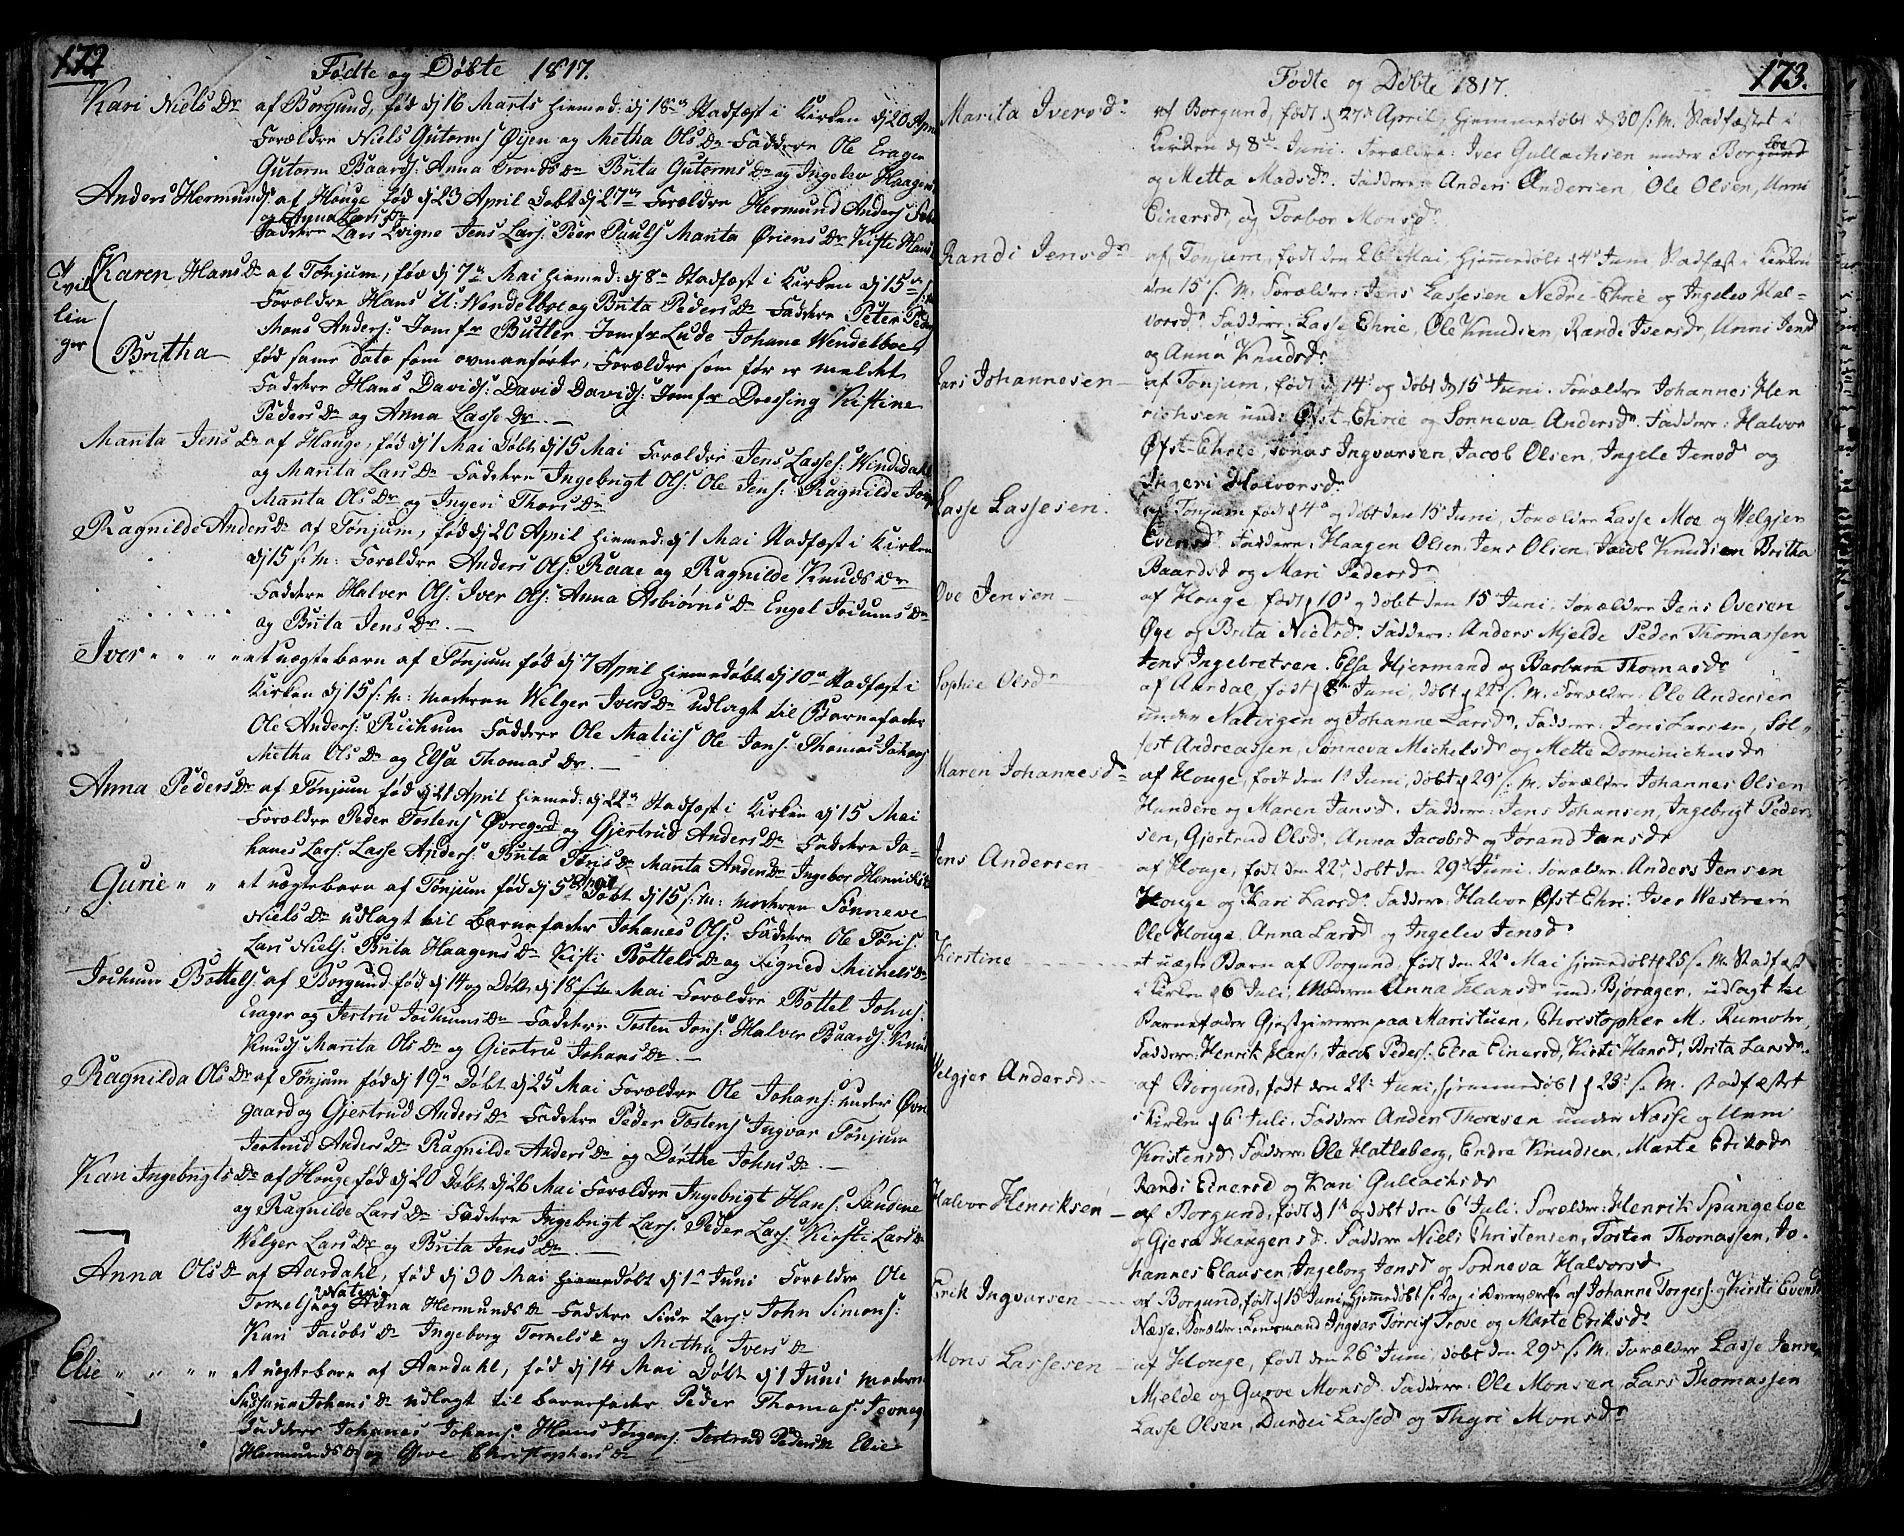 172
Fødte og Døbte 1817.
Kari Niels Dr af Borgund, fød dj 16 Marts hiemed: dj 18de Stadfæst i Kirken dj 20 April
Forældre Niels Gutorms Øijen og Metha Ols Dr Faddere Ole Erager
Gutorm Baards: Anna Tronds Dr Brita Gutorms Dr og Ingelev Haagens
Anders Hermunds af Houge fød dj 23 April Døbt dj 27de Forældre Hermund Anders
og Anna Lars Dr
Faddere Lars Lvigne Jens Lars: Peer Pauls Marita Øriens Dr Kiste Hans
Tvil
lin
ger
Karen Hans Dr af Tønjum, fød dj 7de Mai hiemed: dj 8de Stadfæst i Kirken dj 15de
Forældre Hans U: Wendelboe og Brita Peders Dr Faddere Peter
Mons Anders: Jomfr Buttler Jomfr Lude Johane Wendelboe
Britha
fød same dato som ovenanførte, Forældre som før er meldt
Faddere Hans Davids: David Davids: Jomfr Dressing Kistine
Peders Dr og Anna Lasse Dr
Marita Jens Dr af Houge, fød dj 1 Mai Døbt dj 15 Mai Forældre Jens Lasses: Windedahl
og Marita Lars Dr Faddere Ingebrigt Ols: Ole Jens: Ragnilde
Marita Ols Dr og Ingeri Thors Dr
Ragnilde Anders Dr af Tønjum, fød dj 20 April hiemed: dj 1 Mai Stadfæst i Kirken
dj 15 s: M: Forældre Anders Ols: Raae og Ragnilde Knuds Dr
Faddere Halver Ols: Iver Ols: Anna Asbiørns Dr Engel Jocums Dr
og Brita Jens Dr
Iver et uægtebarn af Tønjum fød dj 7 April hiemedøbt dj 10de Stadfæst i
Kirken dj 15 s: M: moderen Welger Ivers Dr udlagt til Barnefader
Ole Anders: Rickum Faddere Ole Matiis Ole Jens: Thomas
Metha Ols Dr og Elsa Thomas Dr
Anna Peders Dr af Tønjum fød dj 21 April hiemed: dj 22de Stadfæst i Kirken dj 15 Mai
Forældre Peder Tostens Øvregard og Gjertrud Anders Dr Faddere Jo-
hanes Lars: Lasse Anders: Brita Joris Dr Marita Anders Dr Ingebor Henricks
Gurie et uægtebarn af Tønjum fød dj 5 April Døbt dj 15 s: M: moderen Sønneve
Niels Dr udlagt til barnefader Johanes Ols: Faddere Ole Joris:
Lars Niels: Brita Haagens Dr Kisti Bottels Dr og Signed Michels Dr
Jochum Bottels: af Borgund fød dj 14 og Døbt dj 18 Mai Forældre Bottel Johns:
Erager og Jertru Jochums Dr Faddere Tosten Jons: Halver Baards: Knud
Knuds Marita Ols Dr og Giertru Johans Dr
Ragnilda Ols Dr af Tønjum fød dj 19de Døbt dj 25 Mai Forældre Ole Johans: under Øvre
gaard og Gjertrud Anders Dr Faddere Peder Tostens Ingvar Tønjum
Jertrud Anders Dr Ragnilde Anders Dr og Dorthe Johns Dr
Kari Ingebrigts Dr af Houge fød dj 20 Døbt dj 26 Mai Forældre Ingebrigt Hans: Sandene
og Ragnilde Lars Dr Faddere Ingebrigt Lars: Peder Lars: Kirsti Lars Dr
Welger Lars Dr og Brita Jens Dr
Anna Ols Dr af Aardahl, fød dj 30 Mai hiemedøbt dj 1de Juni Forældre Ole
Natvig
Tornels og Anna Hermunds Dr Faddere Siur Lars: John Simons:
Kari Jacobs Dr Ingeborg Tornels Dr og Metha Ivers Dr
Elie et uægtebarn af Aardahl, fød dj 14 Mai Døbt dj 1 Juni moderen
Susanna Johans Dr udlagt til barnefader Peder Thomas:
Faddere Johanes Johans: Hans Jørgens: Jertrud Peders Dr Elie
Hermunds Dr og Christophers Dr
173.
Fødte og Døbte 1817.
Marita Iversd. af Borgund, født d 27de April, hjemmedøbt d 30 s: M. Stadfæstet i
Kirken d 8de Juni. Forældre: Iver Gullachsen under Borgund
og Metta Madsdr. Faddere: Anders Andersen, Ole Olsen, Unni
Einersdr og Torbor Monsdr
Randi Jensdr af Tønjum, født den 26 Mai, hjemmedøbt d 4de Juni Stadfæst i Kirken
den 15 s: M. Forældre: Jens Lassesen Nedre-Ehrie og Ingelev Hal-
vorsdr Faddere: Lasse Ehrie, Ole Knudsen, Rande Iversdr, Unni Jensd
og Anna Knudsdr
Lars Johannesen - af Tønjum, født d 14de og døbt d 15de Juni. Forældre Johannes Hen
richsen und: Øfst-Ehrie og Sønneva Andersdr. Faddere: Halvor
Øfst-Ehrie, Jonas Ingvarsen, Jacob Olsen, Ingele Jensdr og
Ingeri Halvorsdr
Lasse Lassesen. af Tønjum født d 4de og døbt den 15 Juni, Forældre Lasse Moe og Welgjer
Evensdr. Faddere: Haagen Olsen, Jens Olsen, Jacob Knudsen Britha
Baardsd og Mari Pedersdr
Ove Jensen - af Houge, født d 10de og døbt den 15 Juni, Forældre Jens Ovesen
Øye og Brita Nielsdr. Faddere: Anders Mjelde Peder Thomassen
Jens Ingebretsen. Elsa Hjermand og Barbara Thomasdr
Sophie Olsdr af Aardal, født d 8de Juni, døbt d 22de s: M. Forældre: Ole Andersen
under Natvigen og Johanne Larsdr. Faddere: Jens Larsen, Sol-
fest Andreassen, Sønneva Michelsdr og Mette Dominichusdr
Maren Johannesdr af Houge, født den 1de Juni, døbt d 29de s: M. Forældre Johannes Olsen
Hundere og Maren Jansdr. Faddere: Jens Johansen, Ingebrigt Peder-
sen, Gjertrud Olsdr, Anna Jacobsdr og Jorand Jansdr
Jens Andersen - af Houge, født den 22de døbt den 29de Juni. Forældre: Anders Jensen
Houge og Kari Larsdr. Faddere: Halvor Øfst Ehri: Iver Westrem
Ole Houge, Anna Larsd og Ingelev Jensdr
Kirstine - et uægte Barn af Borgund, født den 22de Mai hjemmedøbt d 25 s: M. Stadfæst
i Kirken d 6 Juli, Moderen Anna Hansdr und: Bjørager, udlagt til
Barnefader Gjestgiveren paa Maristuen, Christopher M. Rumohr,
Faddere: Henrik Hans: Jacob Peders: Elsa Einersd, Kirsti Hansd, Brita Larsdr.
Welgjer Andersd af Borgund, født den 22de Juni, hjemmedøbt d 23de s: M. stadfæstet
i Kirken d 6de Juli. Faddere Anders Thoresen under Næsse og Unni
Kristensd, Faddere: Ole Hatleberg, Endre Knudsen, Marte Eriksdr
Randi Einersd og Kari Gullachsdr
Halvor Henriksen - af Borgund, født d 1de og døbt den 6de Juli. Forældre: Henrik Spangeloe
og Gjesa Haagensd. Faddere Niels Christensen, Tosten Thomassen, Jo-
hannes Clausen, Ingeborg Jensdr og Sønneva Halvorsdr
Erik Ingvarsen af Borgund, født d 15 Juni hjemmedøbt s: Dag i Overværelse af Johanne Torgers: og Kirsti Evensd
Næsse. Forældre: Lensmand Ingvar Torris: Trove og Marte Eriksdr
Mons Lassesen - af Houge, født den 26de Juni, døbt den 29de s: M. Forældre Lasse Jensen
Mjelde og Gurve Monsdr. Faddere: Ole Monsen, Lars Thomassen
Lasse Olsen, Durdei Lassed og Thyri Monsdr